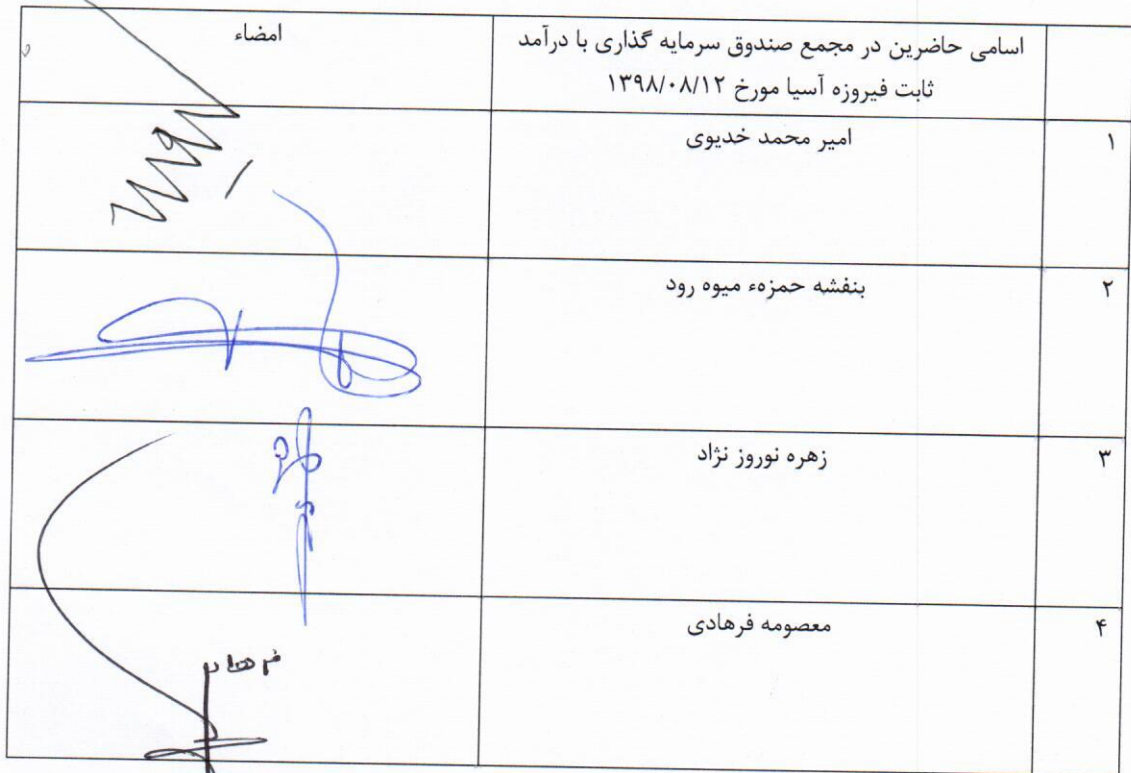 اسامی حاضرین در مجمع صندوق سرمایه گذاری با درآمد
ثابت فیروزه آسیا مورخ ۱۳۹۸/۰۸/۱۲
امضاء
۱
امیر محمد خدیوی
۲
بنفشه حمزهء میوه رود
۳
زهره نوروز نژاد
۴
معصومه فرهادی